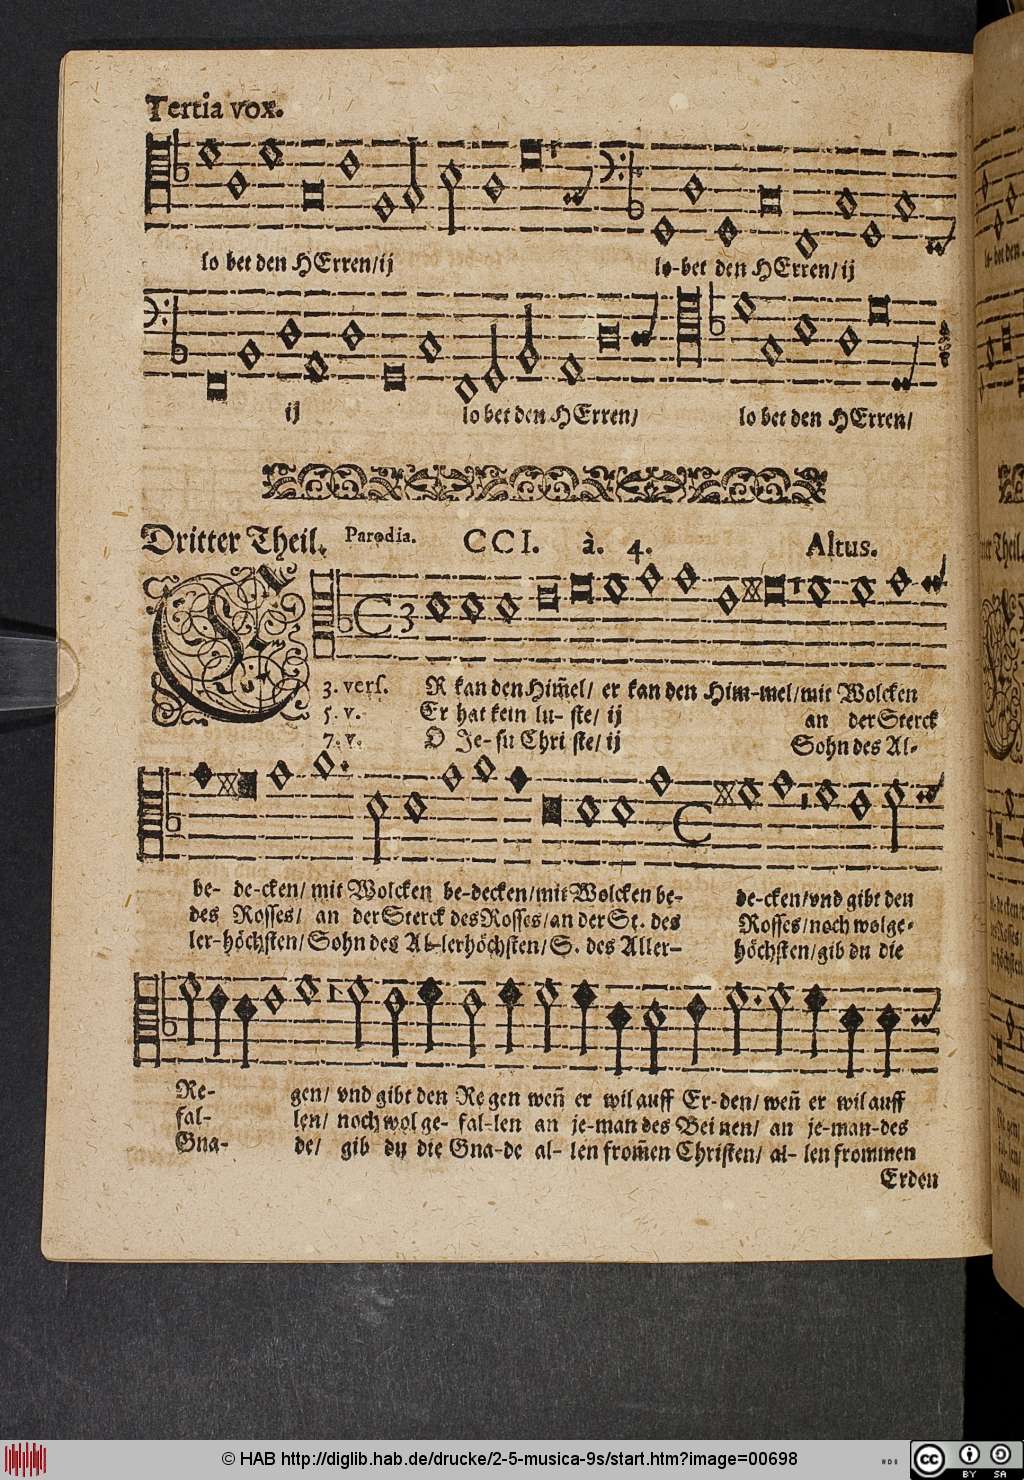 Tertia vox.
lo bet den HErren/ij lo-bet den HErren/ij
ij lo bet den HErren/ lo bet den HErren/
Dritter Theil. Parodia. CCI. à. 4. Altus.
3
3. vers. ER kan den Him̃el/ er kan den Him-mel/mit Wolcken
5. v. Er hat kein lu- ste/ ij an der Sterck
7. v. O Je-su Chri ste/ ij Sohn des Al-
be- de-cken/ mit Wolcken be-decken/mit Wolcken be- de-cken/vnd gibt den
des Rosses/ an der Sterck des Rosses/an der St. des Rosses/noch wolge-
ler-höchsten/Sohn des Al-lerhöchsten/S. des Aller- höchsten/gib du die
Re- gen/ vnd gibt den Re gen weñ er wil auff Er-den/ weñ er wil auff
fal- len/ noch wol ge- fal-len an je-man des Bei nen/ an je-man-des
Gna- de/ gib du die Gna-de al- len from̃en Christen/ al- len frommen
Erden
© HAB http://diglib.hab.de/drucke/2-5-musica-9s/start.htm?image=00698
cc BY SA